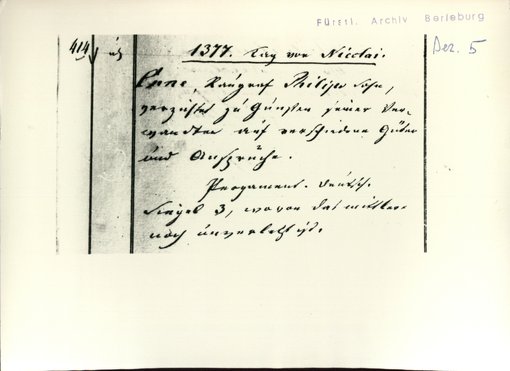 Fürstl. Archiv Berleburg
Dez. 5
414
1377. Tag vor Nicolai.
Cune, Raugraf Philipps Sohn,
verzichtet zu Gunsten seiner Ver-
wandten auf verschiedene Güter
und Ansprüche.
Pergament. Deutsch.
Siegel 3, wovon das mittlere
noch unverletzt ist.